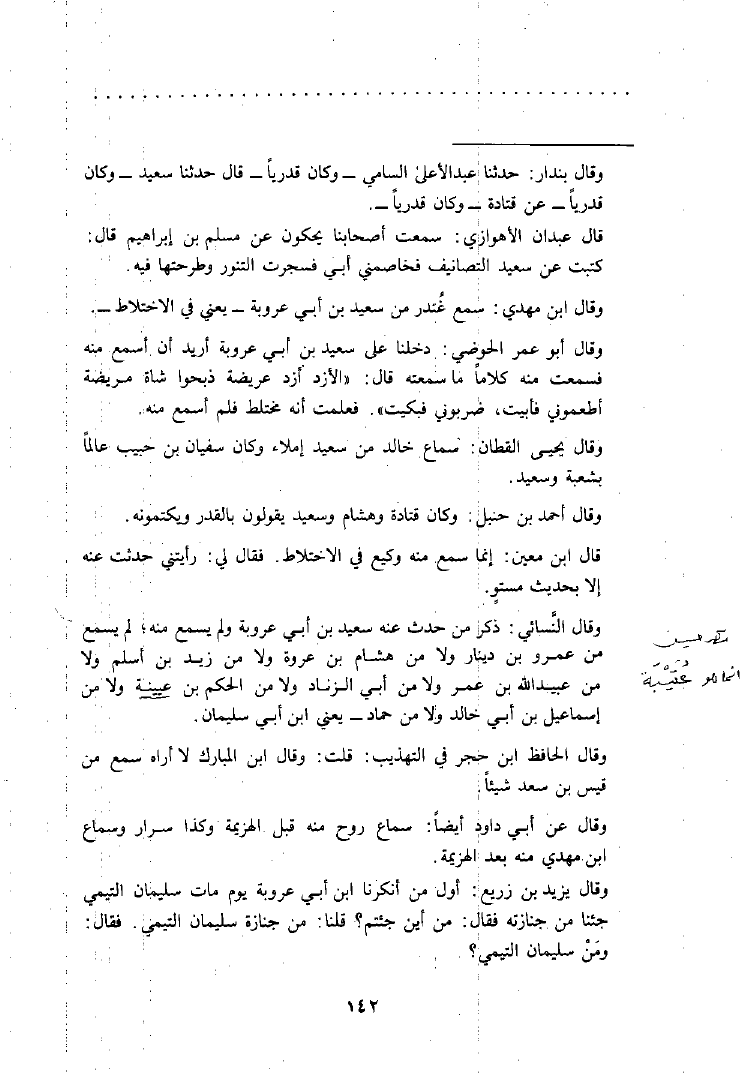 وقال بندار: حدثنا عبدالأعلى السامي ــ وكان قدرياً ــ قال حدثنا سعيد ــ وكان
قدرياً ــ عن قتادة ــ وكان قدرياً ــ.
قال عبدان الأهوازي: سمعت أصحابنا يحكون عن مسلم بن إبراهيم قال:
كتبت عن سعيد التصانيف فخاصمني أبي فسجرت التنور وطرحتها فيه.
وقال ابن مهدي: سمع غُندر من سعيد بن أبي عروبة ــ يعني في الاختلاط ــ.
وقال أبو عمر الحوضي: دخلنا على سعيد بن أبي عروبة أريد أن أسمع منه
فسمعت منه كلاماً ما سمعته قال: «الأزد أزد عريضة ذبحوا شاة مريضة
أطعموني فأبيت، ضربوني فبكيت». فعلمت أنه مختلط فلم أسمع منه.
وقال يحيى القطان: سماع خالد من سعيد إملاء وكان سفيان بن حبيب عالماً
بشعبة وسعيد.
وقال أحمد بن حنبل: وكان قتادة وهشام وسعيد يقولون بالقدر ويكتمونه.
قال ابن معين: إنما سمع منه وكيع في الاختلاط. فقال لي: رأيتني حدثت عنه
إلا بحديث مستوٍ.
وقال النَّسائي: ذكر من حدث عنه سعيد بن أبي عروبة ولم يسمع منه؛ لم يسمع
من عمرو بن دينار ولا من هشام بن عروة ولا من زيد بن أسلم ولا
من عبيدالله بن عمر ولا من أبي الزناد ولا من الحكم بن عيينة ولا من
إسماعيل بن أبي خالد ولا من حماد ــ يعني ابن أبي سليمان.
انما هو عتيبة
وقال الحافظ ابن حجر في التهذيب: قلت: وقال ابن المبارك لا أراه سمع من
قيس بن سعد شيئاً.
وقال عن أبي داود أيضاً: سماع روح منه قبل الهزيمة وكذا سرار وسماع
ابن مهدي منه بعد الهزيمة.
وقال يزيد بن زريع: أول من أنكرنا ابن أبي عروبة يوم مات سليمان التيمي
جئنا من جنازته فقال: من أين جئتم؟ قلنا: من جنازة سليمان التيمي. فقال:
ومَنْ سليمان التيمي؟
١٤٢